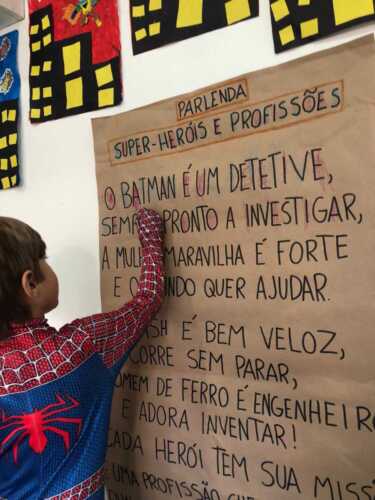 PARLENDA
SUPER-HERÓIS E PROFISSÕES
O BATMAN É UM DETETIVE,
PRONTO A INVESTIGAR,
A MARAVILHA É FORTE
E O QUER AJUDAR.
É BEM VELOZ,
SEM PARAR,
DE FERRO É ENGENHEIRO
E ADORA INVENTAR!
CADA HERÓI TEM SUA
UMA PROFISSÃO